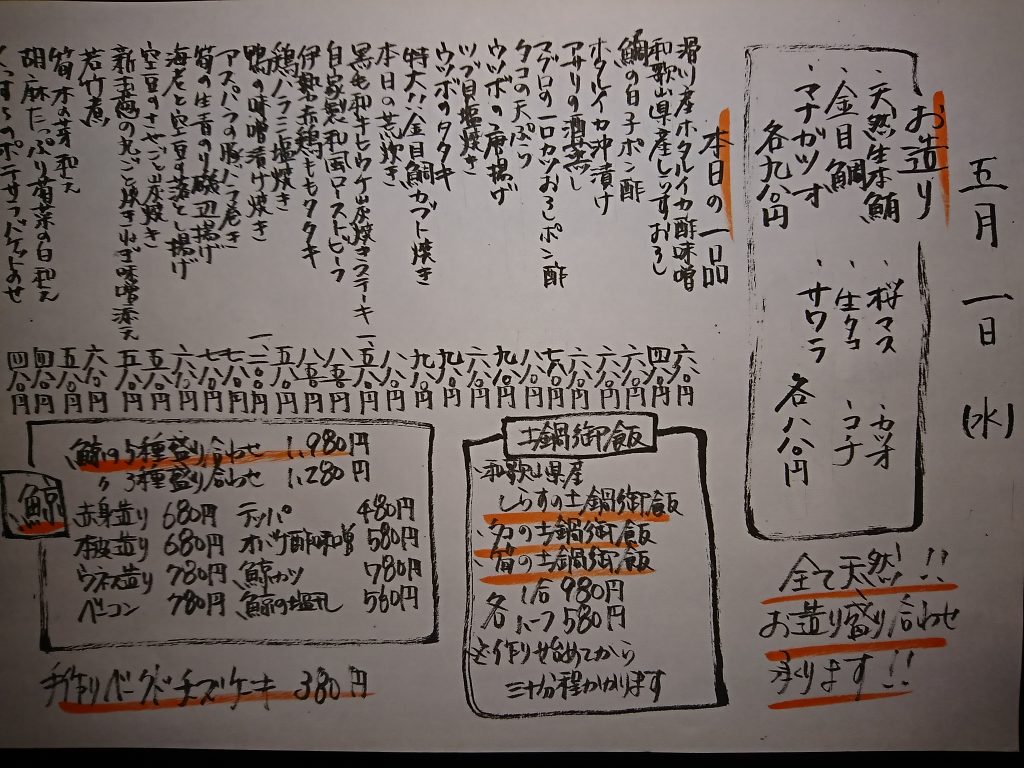 五月一日(水)
お造り
・天然生本鮪
・金目鯛
・マナガツオ
各九八〇円
・桜マス
・生タコ
・サワラ
・カツオ
・コチ
各八八〇円
全て天然!!
お造り盛り合わせ
承ります!!
本日の一品
滑川産ホタルイカ酢味噌 六八〇円
和歌山県産しらすおろし 四八〇円
鯛の白子ポン酢 六八〇円
ホタルイカ沖漬け 六八〇円
アサリの酒蒸し 六八〇円
マグロの一口カツおろしポン酢 七八〇円
タコの天ぷら 八八〇円
ウツボの唐揚げ 九八〇円
ツブ貝塩焼き 六八〇円
ウツボのタタキ 九八〇円
特大!!金目鯛カブト焼き 九八〇円
本日の荒炊き 八八〇円
黒毛和牛ヒウチ炭焼きステーキ 一、五八〇円
自家製和風ローストビーフ 八八〇円
伊勢赤鶏ももタタキ 八五〇円
鶏ハラミ塩焼き 五八〇円
鴨の味噌漬け焼き 一、二八〇円
アスパラの豚バラ巻き 七八〇円
筍の生青のり磯辺揚げ 七八〇円
海老と空豆の落とし揚げ 六八〇円
空豆のさやごと炭焼き 五八〇円
新玉葱の丸ごと炊きねぎ味噌添え 五八〇円
若竹煮 六八〇円
筍木の芽和え 五八〇円
胡麻たっぷり菊菜の白和え 四八〇円
四八〇円
土鍋御飯
・和歌山県産
しらすの土鍋御飯
・タコの土鍋御飯
・筍の土鍋御飯
各 1合 980円
ハーフ 580円
※作り始めてから
三十分程かかります
鯨
鯨の5種盛り合わせ 1,980円
〃3種盛り合わせ 1,280円
赤身造り 680円 テッパ 480円
本皮造り 680円 オバケ酢味噌 580円
ウネス造り 780円 鯨カツ 780円
ベーコン 780円 鯨の塩乳 560円
手作りベークドチーズケーキ 380円